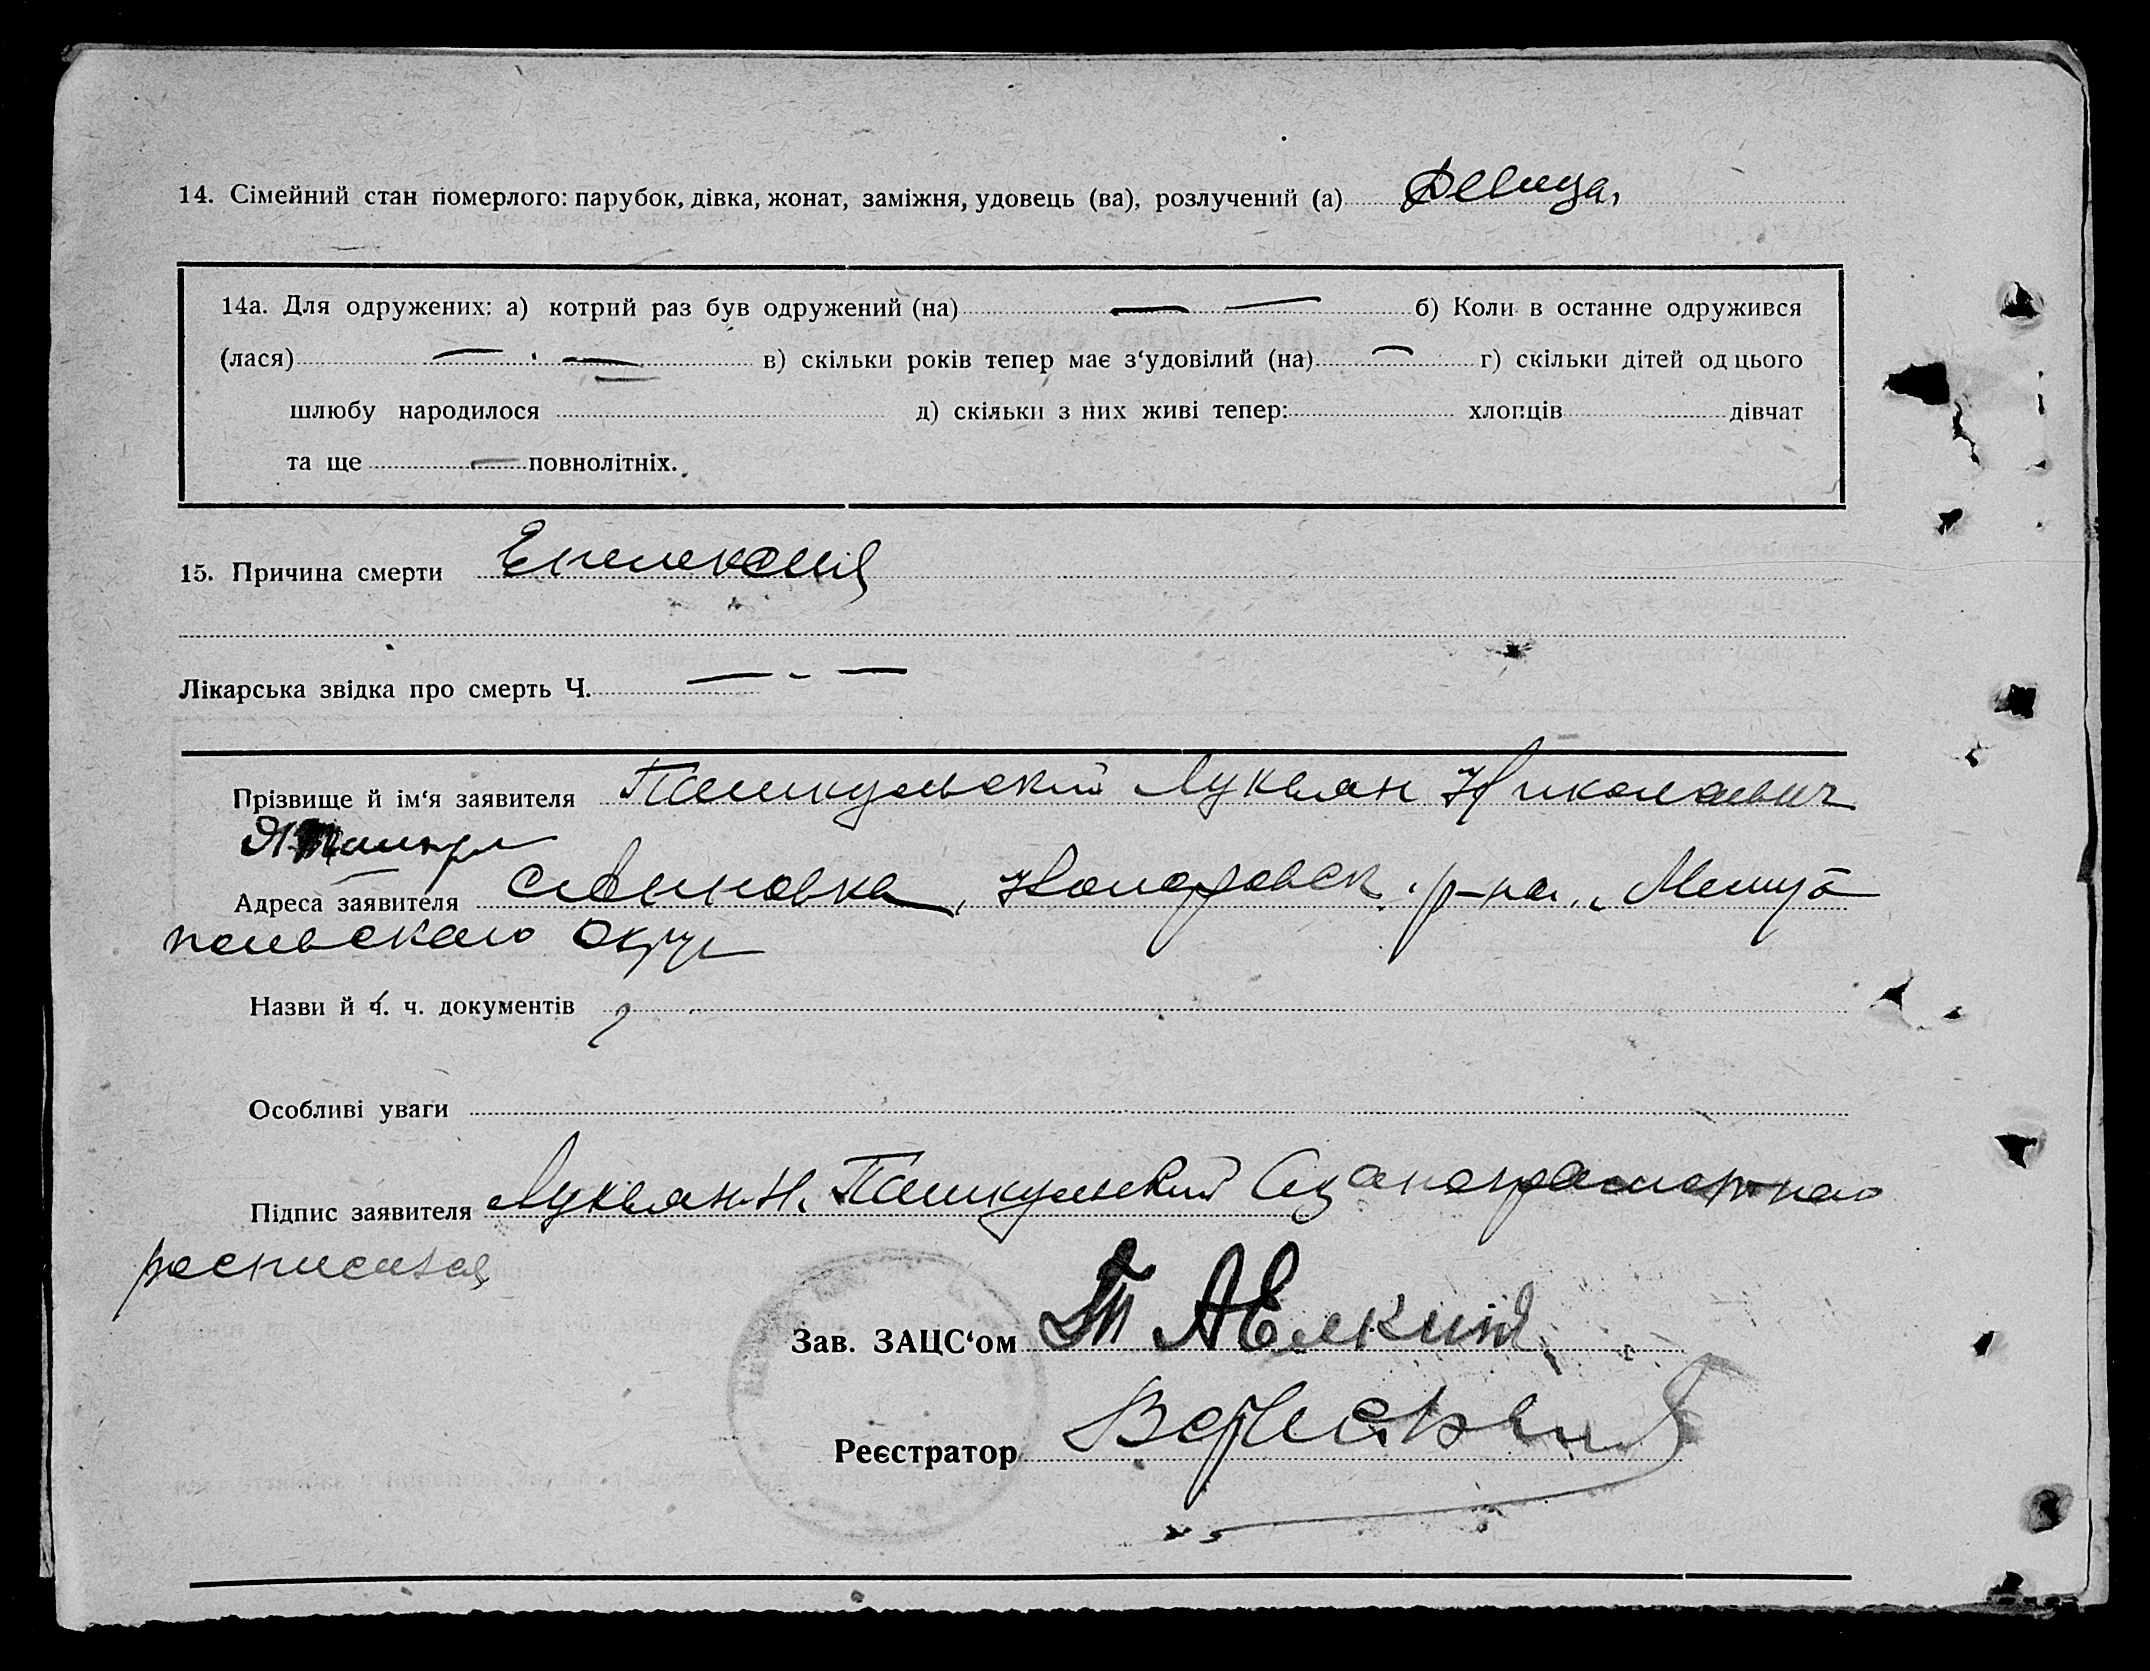 14. Сімейний стан померлого: парубок, дівка, жонат, заміжня, удовець (ва), розлучений (а) Девица,
14а. Для одружених: а) котрий раз був одружений (на) — — б) Коли в останнє одружився
(лася) — · — в) скільки років тепер має з‘удовілий (на) — г) скільки дітей од цього
шлюбу народилося д) скільки з них живі тепер: хлопців дівчат
та ще — повнолітніх.
15. Причина смерти Епилексия
Лікарська звідка про смерть Ч. — - —
Прізвище й ім‘я заявителя Пашкульский Лукьян Николаевич
Адреса заявителя р-на
польского Округ
Назви й ч. ч. документів
Особливі уваги
Підпис заявителя Лукьян Н. Пашкульский
росписался
Зав. ЗАЦС‘ом
Реєстратор